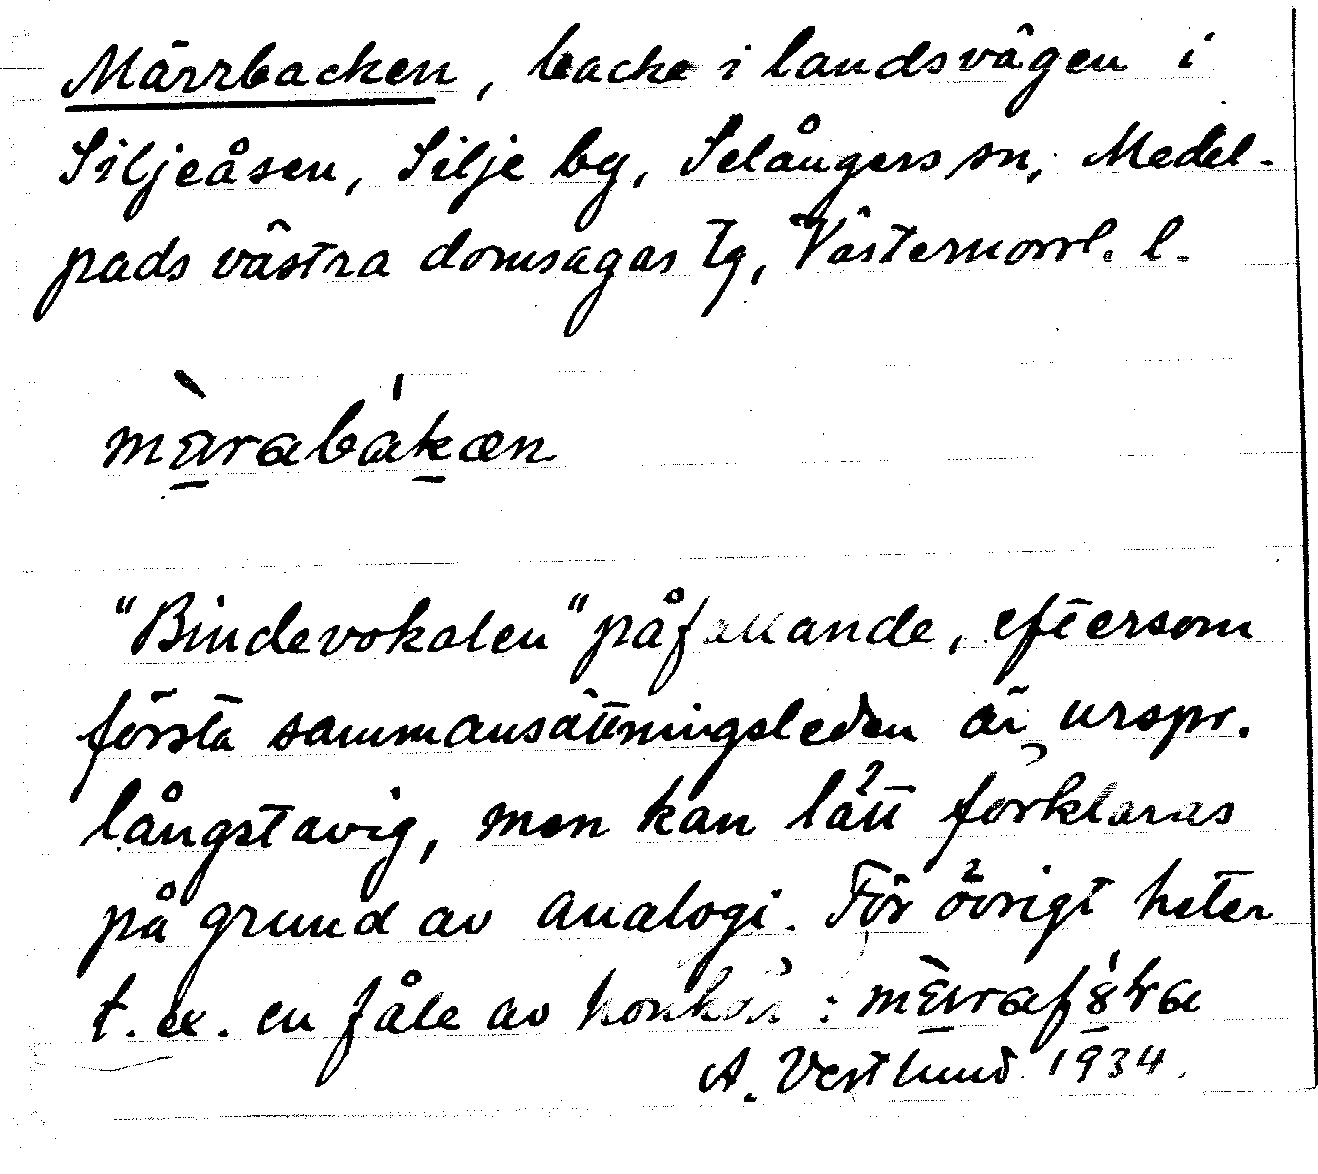 Märrbacken, backe i landsvägen i
Siljeåsen, Silje by, Selångers sn, Medel-
pads västra domsagas tg, Västernorrl. l.
"Bindevokalen" påfallande, eftersom
första sammansättningsleden är urspr.
långstavig, men kan lätt förklaras
på grund av analogi. För övrigt heter
t. ex. en fåle av honkön :
A. Vestlund 1934.